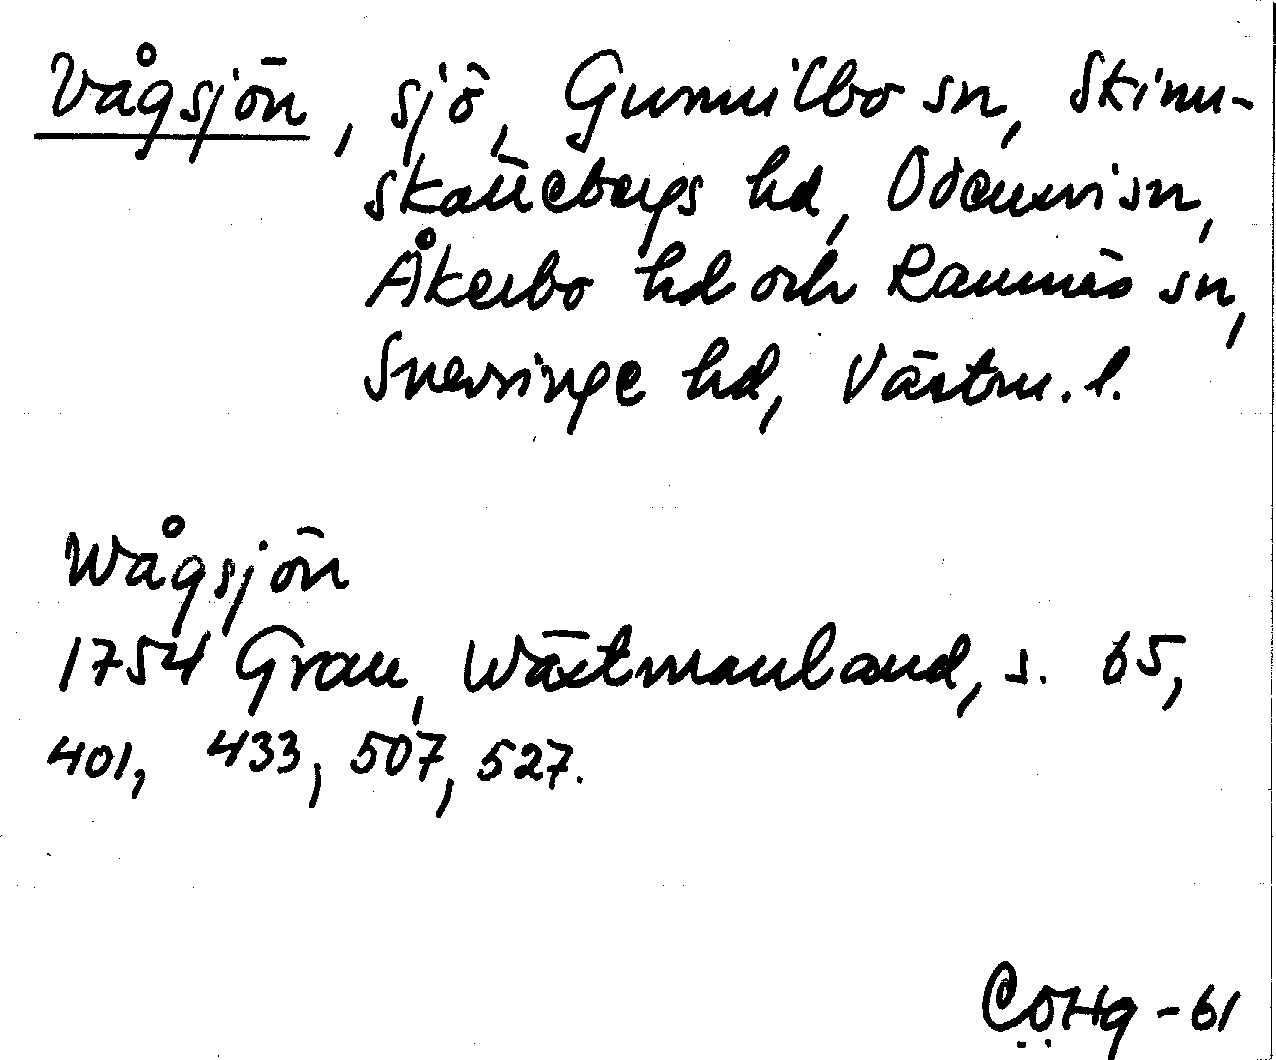 Vågsjön, sjö, Gunnilbo sn, Skinn-
skattebergs hd, Odensvi sn,
Åkerbo hd och Ramnäs sn,
Snevringe hd, Västm. l.
Wågsjön
1754 Grau, Wästmanland, s. 65,
401, 433, 507, 527.
CÖHg - 61